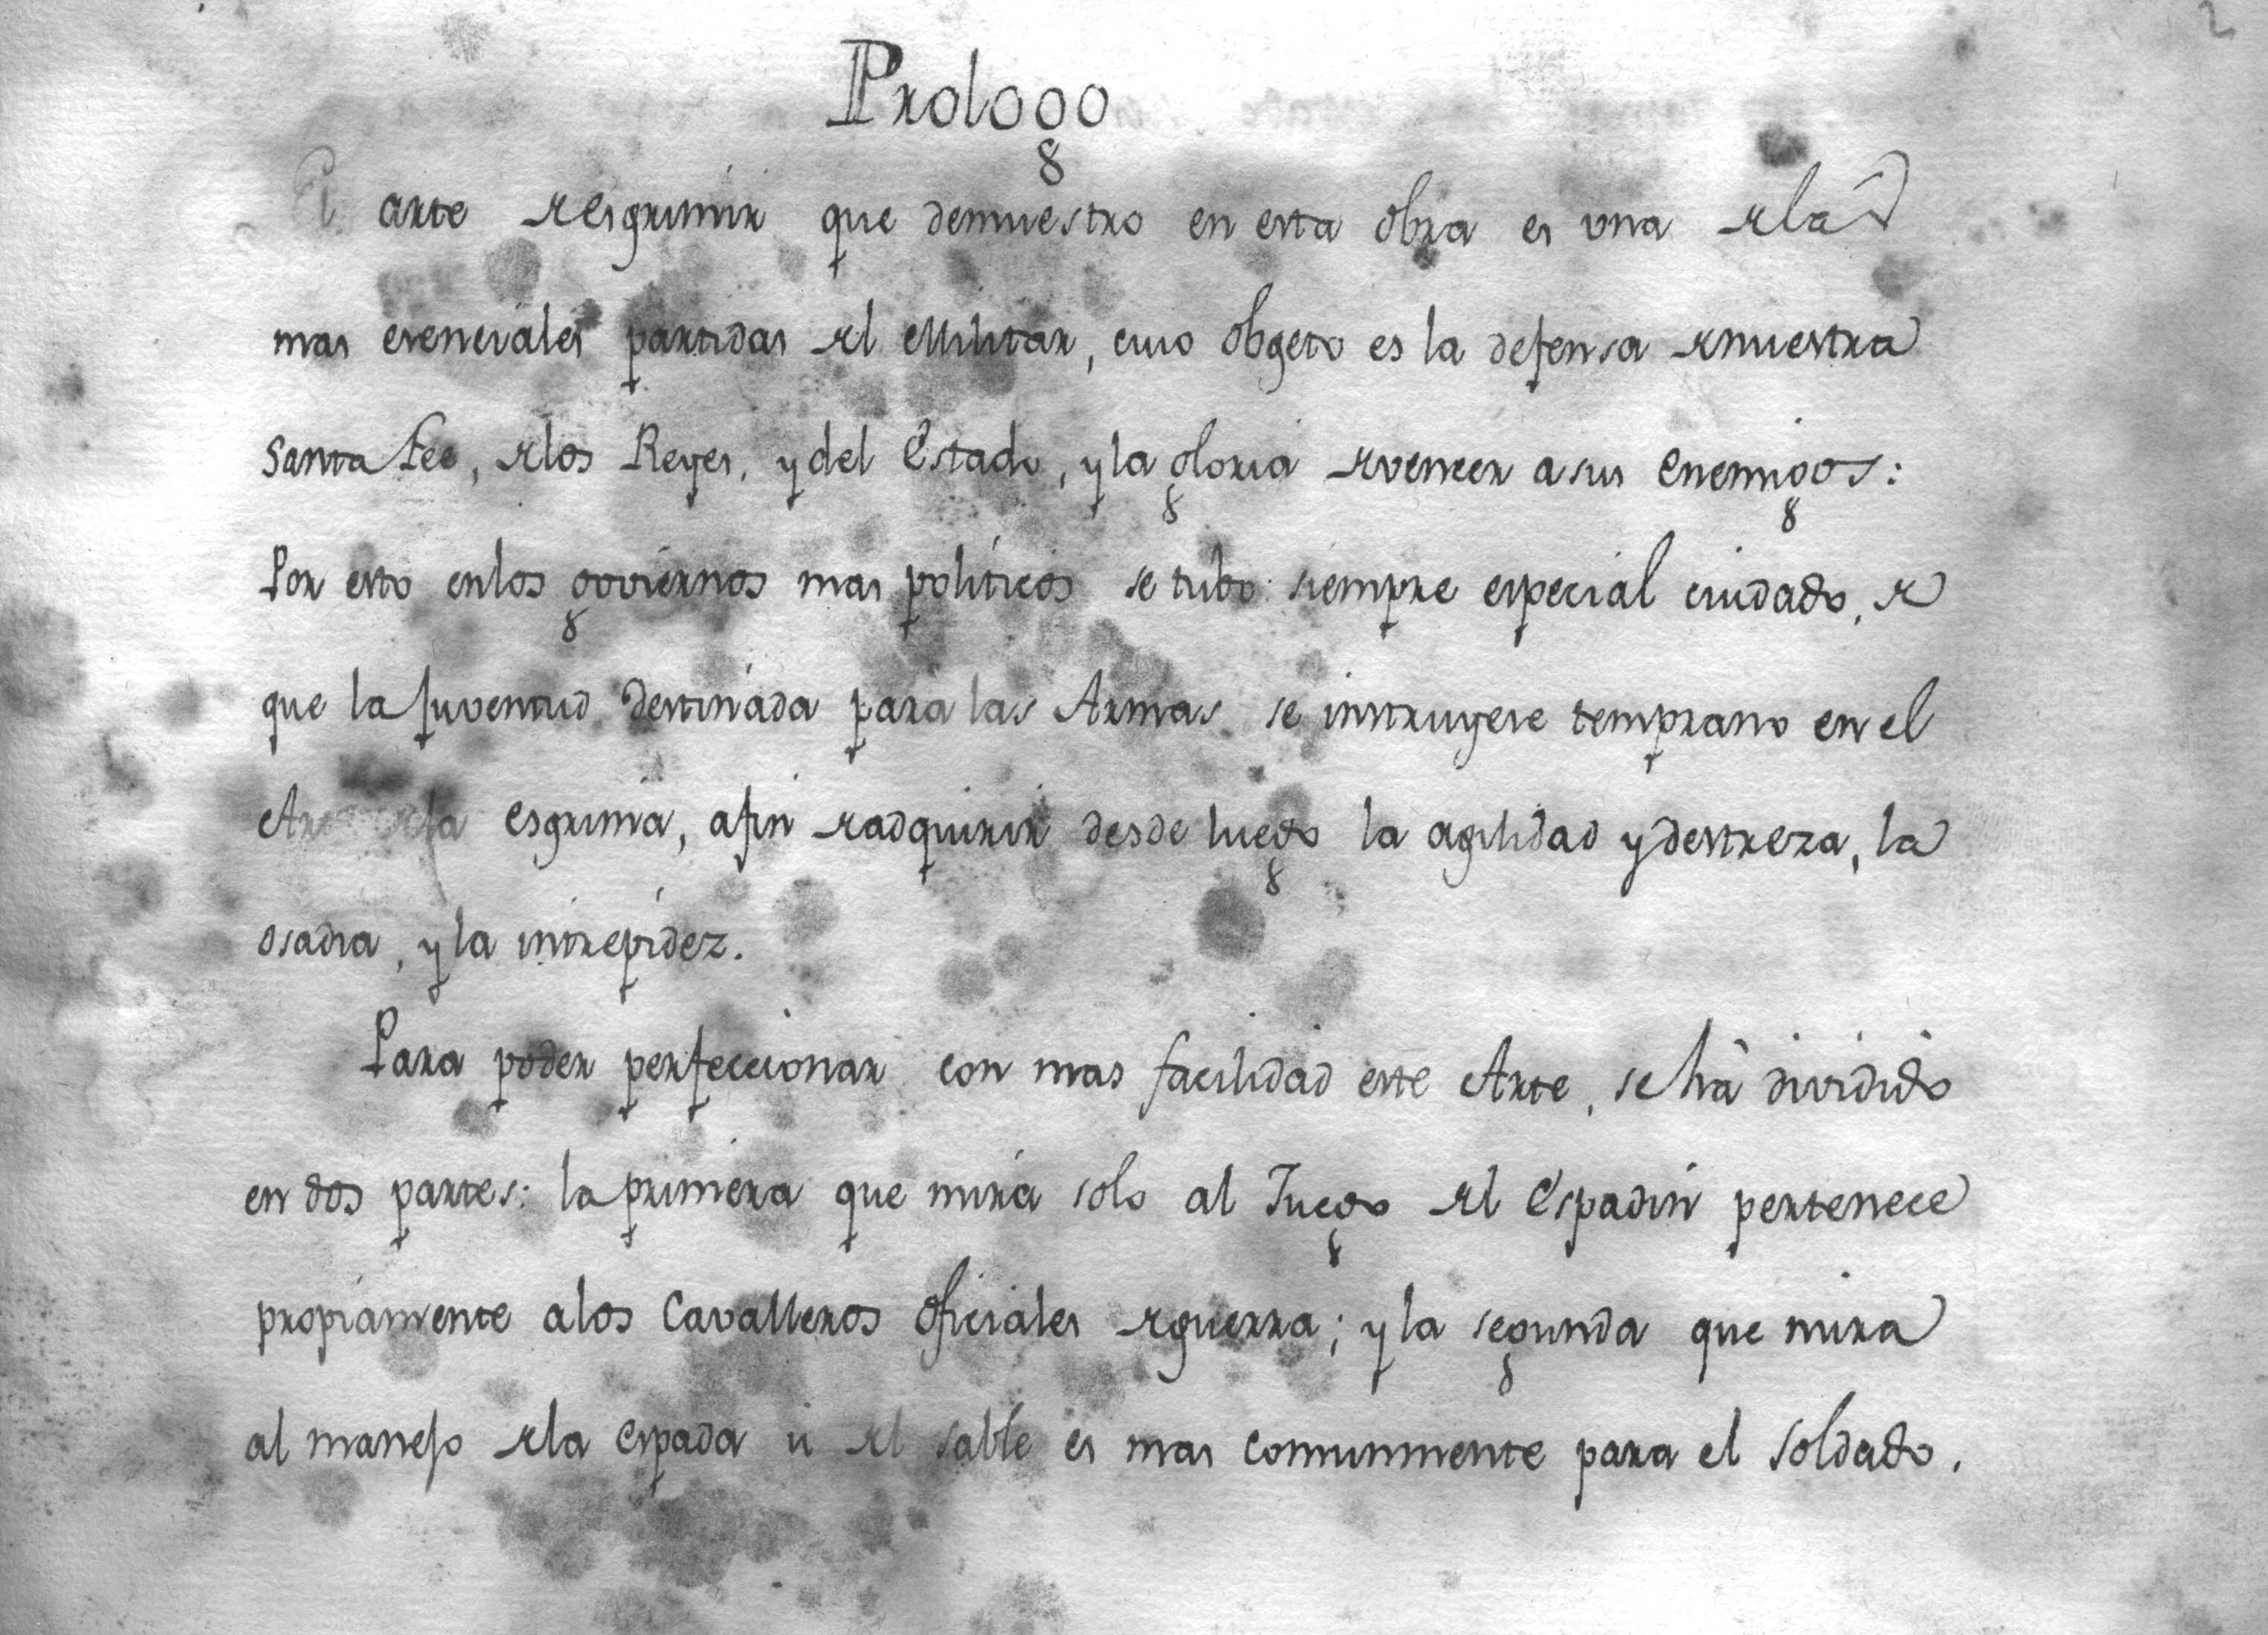 2
Prologo
El arte de esgrimir que demuestro en esta obra es una de las
mas esenciales partidas del Militar, cuio obgeto es la defensa de nuestra
Santa Fee, de los Reyes, y del Estado, y la gloria de vencer a sus Enemigos:
Por esto en los goviernos mas politicos se tubo siempre especial cuidado, de
que la juventud destinada para las Armas se instruyese temprano en el
Arte de la esgrima, a fin de adquirir desde luego la agilidad y destreza, la
osadia, y la intrepidez.
Para poder perfeccionar con mas facilidad este Arte, se hà dividido
en dos partes: la primera que mira solo al Juego del Espadin pertenece
propiamente a los Cavalleros oficiales de guerra; y la segunda que mira
al manejo de la espada ù del sable es mas comunmente para el soldado.